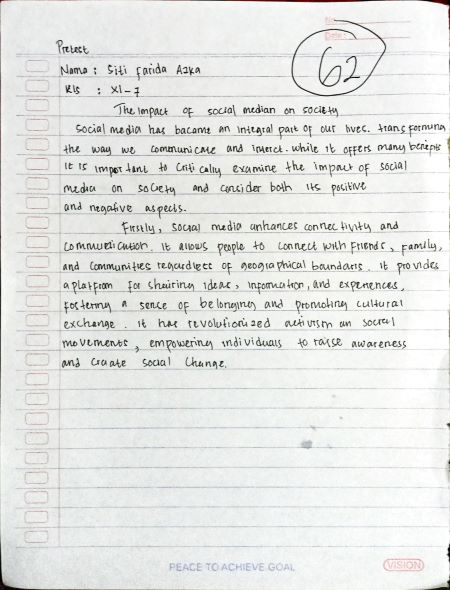 No :
Date :
Pretest
62
Nama : Siti Farida Azka
Kls : XI-7
The Impact of social median on society
Social media has bacame an integral part of our lives. transforming
the way we communicate and interct. while it offers many benefits
it is important to criti cally examine the impact of social
media on society and consider both its positive
and negative aspects.
Firstly, social media enhances connectivity and
communication. it allows people to connect with Friends, Family,
and communities regardless of geographical boundaris. it provides
a platfrom for shairing ideas, infornation, and experiences,
fostering a sense of belonging and promoting cultural
exchange. it has revolutionized activism an social
movements, empowering individuals to raise awareness
and craate social change.
PEACE TO ACHIEVE GOAL
VISION